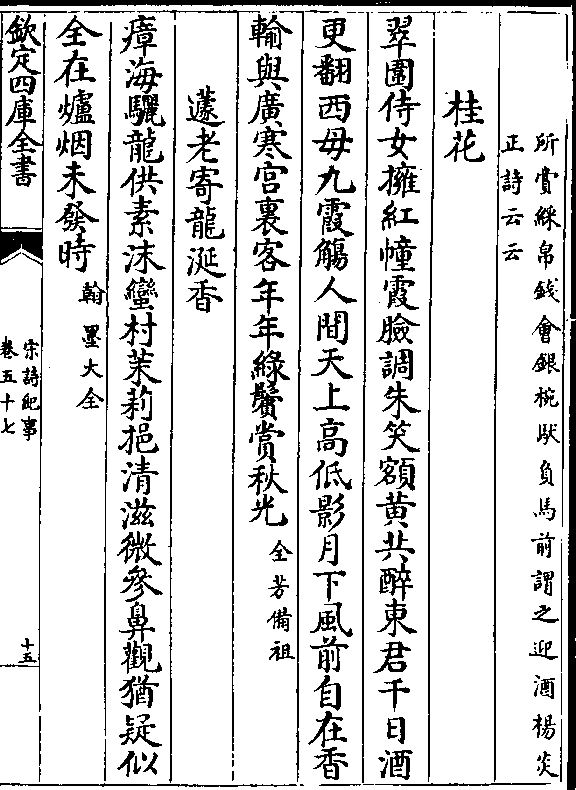 所賞綵帛錢會銀椀馱負馬前謂之迎酒楊炎
正詩云云
桂花
翠園侍女擁紅幢霞臉調朱笑額黄共醉東君千日酒
更翻西母九霞觴人間天上高低影月下風前自在香
輸與廣寒宫裏客年年綠鬢賞秋光全芳備祖
蘧老寄龍涎香
瘴海驪龍供素沫蠻村茉莉挹清滋微參鼻觀猶疑似
全在爐烟未發時翰墨大全
欽定四庫全書
宋詩紀事
卷五十七
十五